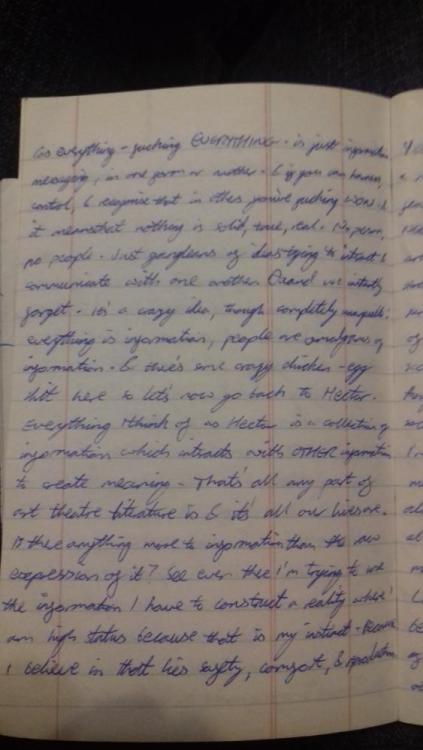 Cos everything - fucking EVERYTHING - is just information
messaging, in one form or another. & if you can harness,
control, & recognise that in this fucking WORLD
it means that nothing is solid, true, real. No person,
no people. Just of ideas trying to interact &
communicate with one another and we initially
forget. It's a crazy idea, though completely
everything is information, people are amalgams of
information. & there's some crazy chicken - egg
shit here so let's now go back to Hector.
Everything I think of as Hector is a collection of
information which interacts with OTHER information
to create meaning. That's all any part of
art theatre literature is & it's all our lives are.
Is there anything more to information than the raw
expression of it? See even there I'm trying to use
the information I have to construct a reality where I
am high status because that is my instinct - Because
I believe in that lies safety, comfort, &